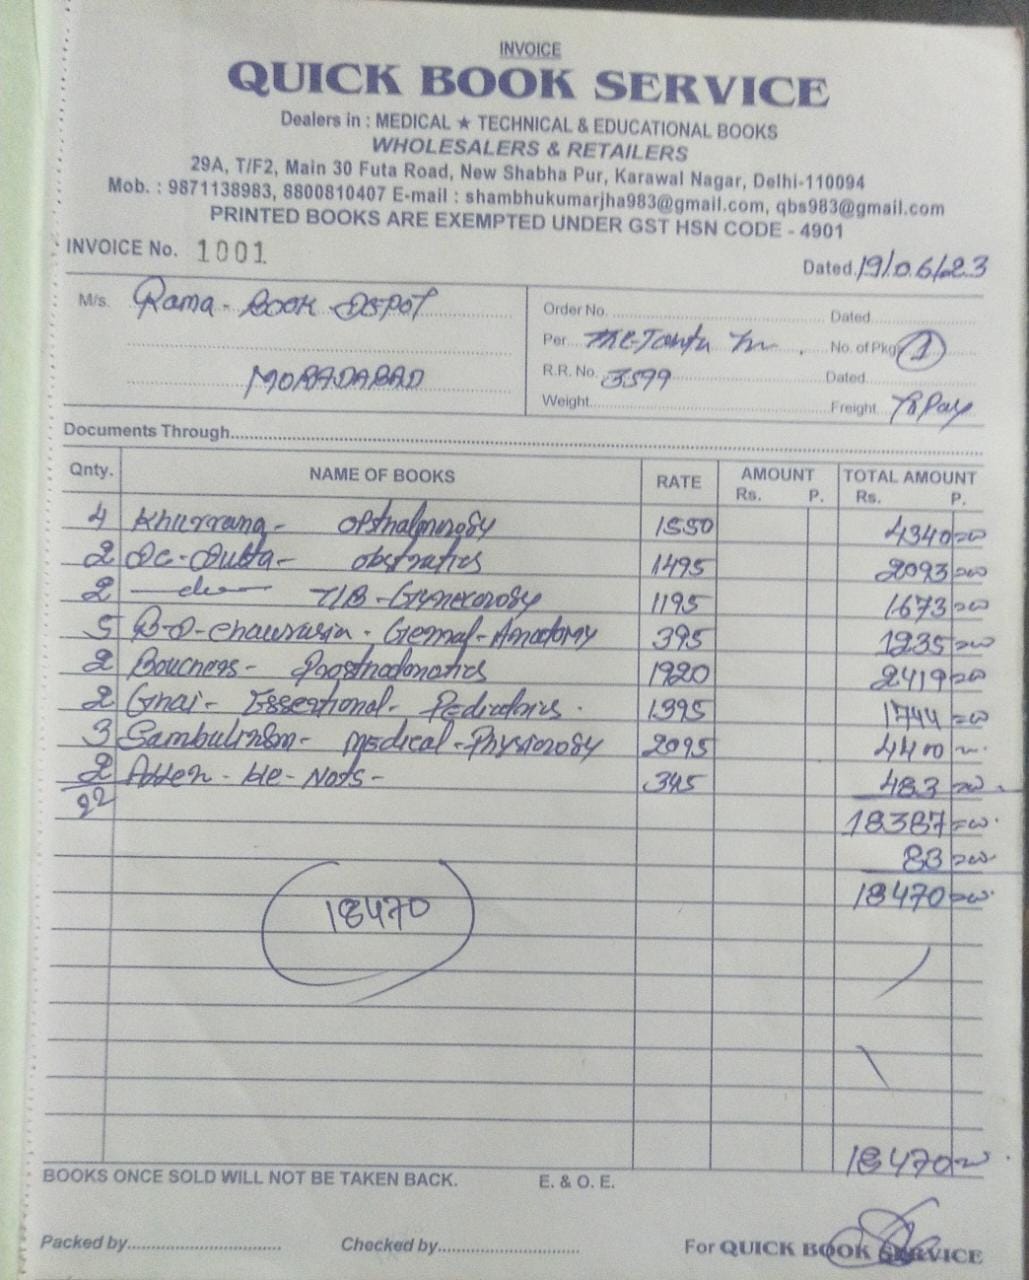 INVOICE
QUICK BOOK SERVICE
Dealers in : MEDICAL ★ TECHNICAL & EDUCATIONAL BOOKS
WHOLESALERS & RETAILERS
29A, T/F2, Main 30 Futa Road, New Shabha Pur, Karawal Nagar, Delhi-110094
Mob. : 9871138983, 8800810407 E-mail : shambhukumarjha983@gmail.com, qbs983@gmail.com
PRINTED BOOKS ARE EXEMPTED UNDER GST HSN CODE - 4901
INVOICE No. 1001 Dated 19/06/23
M/s. Rama - BOOK DEPOT
MORADABAD
Order No. Dated
Per No. of Pkg 1
R.R. No. 3599 Dated
Weight Freight To Pay
Documents Through
Qnty. NAME OF BOOKS RATE AMOUNT Rs. P. TOTAL AMOUNT Rs. P.
4 Khurrana - 1550 4340=00
2 DC-Dutta - obstratics 1495 2093=00
2 T/B - Gynecorosy 1195 1673=00
5 B-D-Chaurasia - Gernal - Anadomy 395 1235=00
2 Bouchers - Prosthodonatics 1920 2419=00
2 Ghai - Essectional - Pediatrics. 1395 1744=00
3 Sambulinsm - Medical - Physiorosy 2095 4400
2 345 483=00
22 18387=00
83=00
18470=00
18470
18470=00
BOOKS ONCE SOLD WILL NOT BE TAKEN BACK. E. & O. E.
Packed by Checked by For QUICK BOOK SERVICE